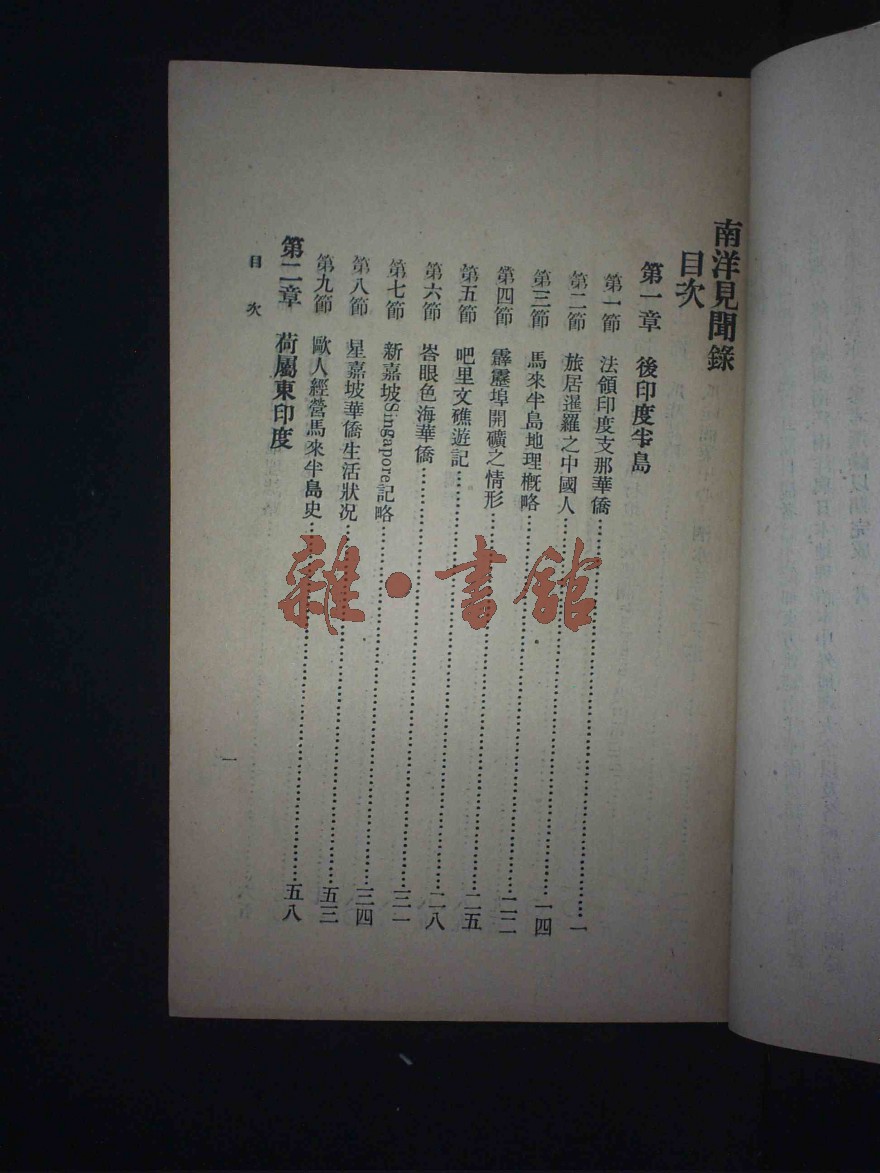 南洋見聞錄
目次
第一章 後印度半島
第一節 法領印度支那華僑……一
第二節 旅居暹羅之中國人……一四
第三節 馬來半島地理概略……二二
第四節 霹靂埠開礦之情形……二五
第五節 吧里文礁遊記……二八
第六節 峇眼色海華僑……三一
第七節 新嘉坡Singapore記略……三四
第八節 星嘉坡華僑生活狀況……五三
第九節 歐人經營馬來半島史……五八
第二章 荷屬東印度
目次
一
雜·書館